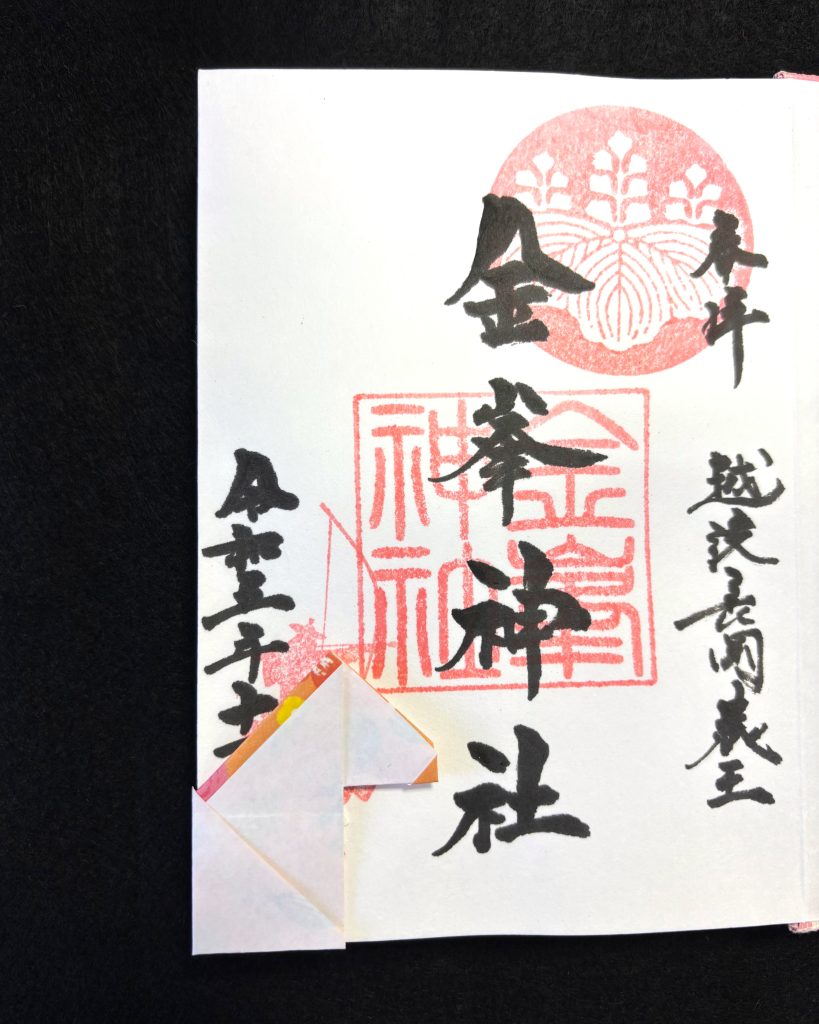 奉拝
越後長岡蔵王
金峯神社
金峯神社
令和三年十